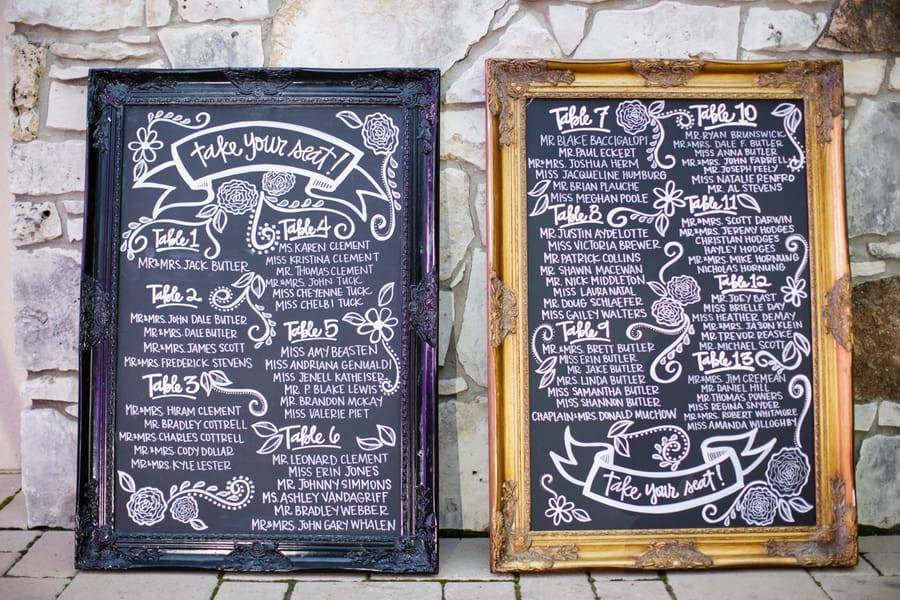 take your seat!
Table 1
MR&MRS. JACK BUTLER
Table 2
MR&MRS. JOHN DALE BUTLER
MR&MRS. DALE BUTLER
MR&MRS. JAMES SCOTT
MR&MRS. FREDERICK STEVENS
Table 3
MR&MRS. HIRAM CLEMENT
MR. BRADLEY COTTRELL
MR&MRS. CHARLES COTTRELL
MR&MRS. CODY DOLLAR
MR&MRS. KYLE LESTER
Table 4
MS. KAREN CLEMENT
MISS KRISTINA CLEMENT
MR. THOMAS CLEMENT
MR&MRS. JOHN TUCK
MISS CHEYENNE TUCK
MISS CHELBI TUCK
Table 5
MISS AMY BEASTEN
MISS ANDRIANA GENUALDI
MISS. JENELL KATHEISER
MR. P. BLAKE LEWIS
MR. BRANDON MCKAY
MISS VALERIE PIET
Table 6
MR. LEONARD CLEMENT
MISS ERIN JONES
MR. JOHNNY SIMMONS
MS. ASHLEY VANDAGRIFF
MR. BRADLEY WEBBER
MR&MRS. JOHN GARY WHALEN
Table 7
MR. BLAKE BACCIGALOPI
MR. PAUL ECKERT
MR&MRS. JOSHUA HERM
MISS JACQUELINE HUMBURG
MR. BRIAN PLAUCHE
MISS MEGHAN POOLE
Table 8
MR. JUSTIN AYDELOTTE
MISS VICTORIA BREWER
MR. PATRICK COLLINS
MR. SHAWN MACEWAN
MR. NICK MIDDLETON
MISS LAURA NATAL
MR. DOUG SCHLAEFER
MISS GAILEY WALTERS
Table 9
MR&MRS. BRETT BUTLER
MISS ERIN BUTLER
MR. JAKE BUTLER
MRS. LINDA BUTLER
MISS SAMANTHA BUTLER
MISS SHANNON BUTLER
CHAPLAIN&MRS. DONALD MUCHOW
Table 10
MR. RYAN BRUNSWICK
MR&MRS. DALE F. BUTLER
MISS ANNA BUTLER
MR&MRS. JOHN FARRELL
MR. JOSEPH FEELY
MISS NATALIE RENFRO
MR. AL STEVENS
Table 11
MR&MRS. SCOTT DARWIN
MR&MRS. JEREMY HODGES
CHRISTIAN HODGES
HAYLEY HODGES
MR&MRS. MIKE HORNUNG
NICHOLAS HORNUNG
Table 12
MR. JOEY BAST
MISS BRIELLE DAY
MISS HEATHER DEMAY
MR&MRS. JASON KLEIN
MR. TREVOR REASKE
MR. MICHAEL SCOTT
Table 13
MR&MRS. JIM CREMEAN
MR. DANIEL HILL
MR. THOMAS POWERS
MISS REGINA SNYDER
MR&MRS. ROBERT WHITMORE
MISS AMANDA WILLOUGHBY
take your seat!